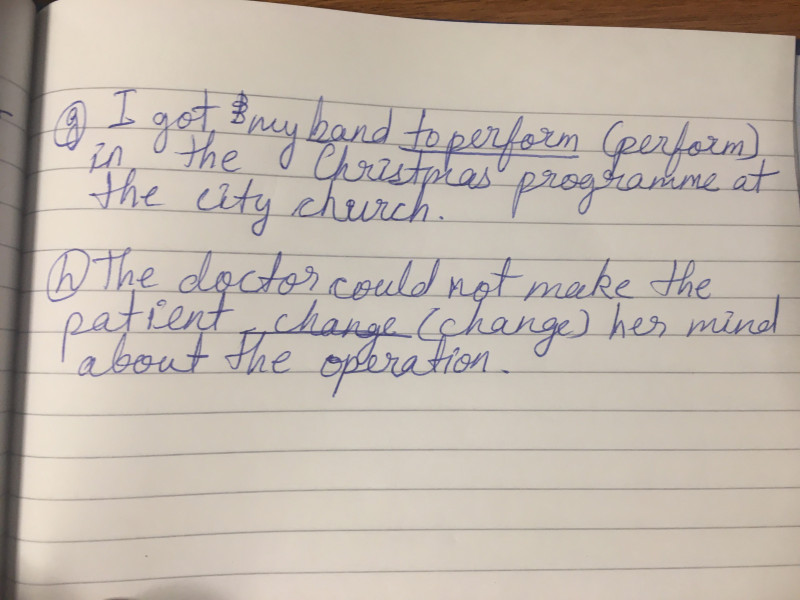 (g) I got my band to perform (perform)
in the Christmas programme at
the city church.
(h) The doctor could not make the
patient change (change) her mind
about the operation.